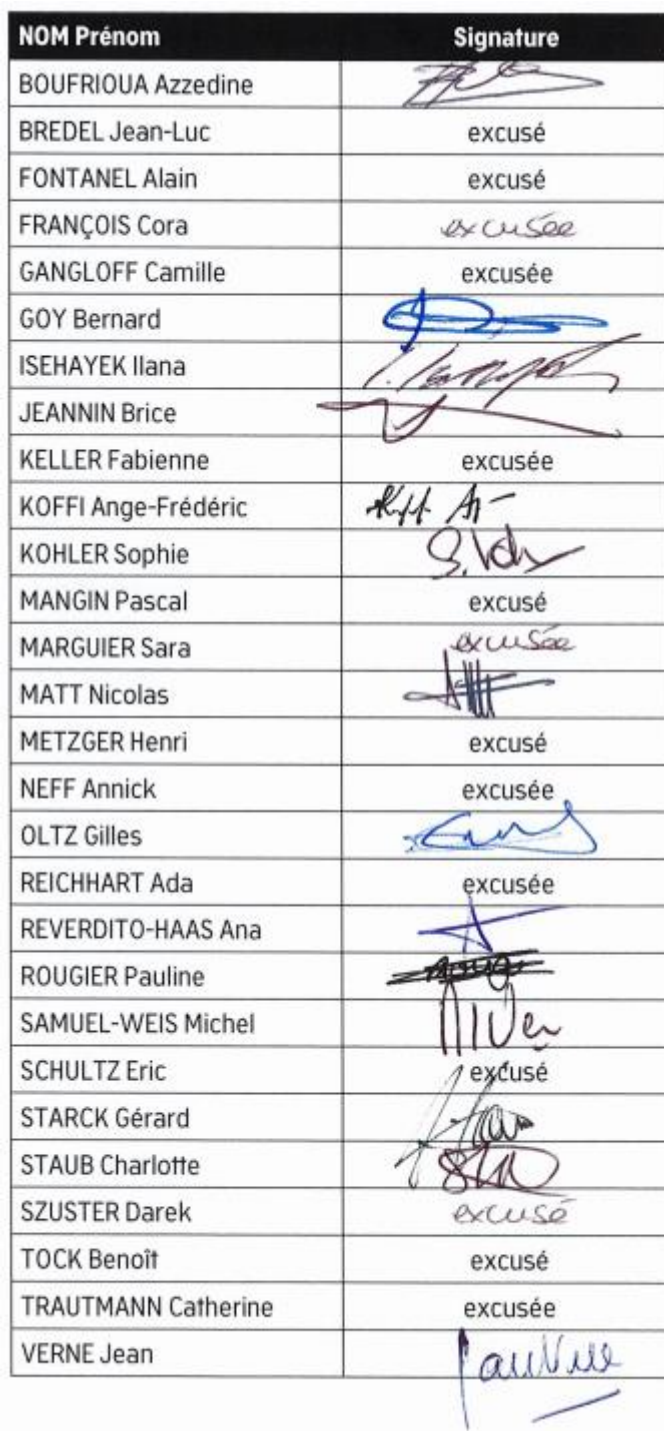 NOM Prénom Signature
BOUFRIOUA Azzedine
BREDEL Jean-Luc excusé
FONTANEL Alain excusé
FRANÇOIS Cora excusée
GANGLOFF Camille excusée
GOY Bernard
ISEHAYEK Ilana
JEANNIN Brice
KELLER Fabienne excusée
KOFFI Ange-Frédéric
KOHLER Sophie
MANGIN Pascal excusé
MARGUIER Sara excusée
MATT Nicolas
METZGER Henri excusé
NEFF Annick excusée
OLTZ Gilles
REICHHART Ada excusée
REVERDITO-HAAS Ana
ROUGIER Pauline
SAMUEL-WEIS Michel
SCHULTZ Eric excusé
STARCK Gérard
STAUB Charlotte
SZUSTER Darek excusé
TOCK Benoît excusé
TRAUTMANN Catherine excusée
VERNE Jean